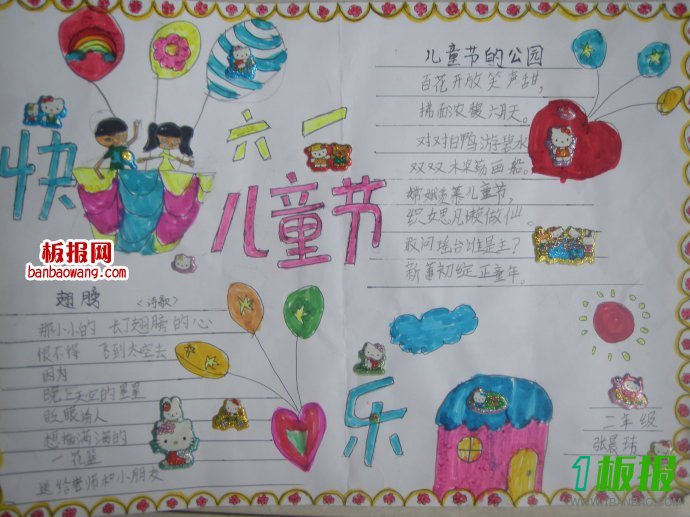 快
六一
儿童节
乐
儿童节的公园
百花开放笑声甜,
扑面浓馥六月天。
对对白鸭游碧水,
双双木桨荡画船。
嫦娥羡慕儿童节,
织女思凡懒做仙。
敢问瑶台谁是主?
新莲初绽正童年。
板报网
banbaowang.com
翅膀 〈诗歌〉
那小小的 长了翅膀的心
恨不得 飞到太空去
因为
晚上天空的星星
眨眼诱人
想摘满满的
一花篮
送给老师和小朋友
二年级
张晨玮
1板报
WWW.1BANBAO.COM